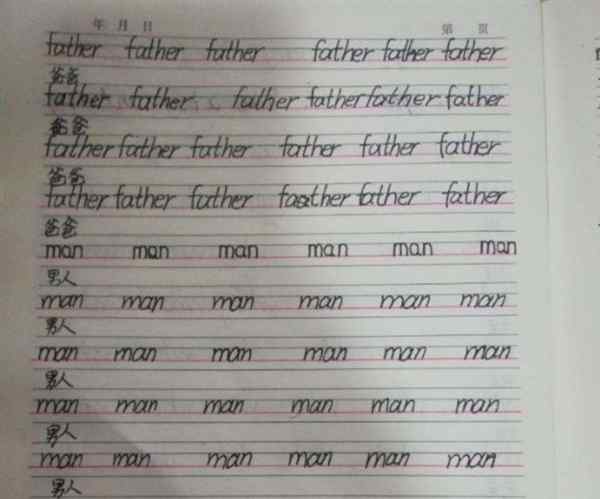 年 月 日 第 页
father father father father father father
爸爸
father father father father father father
爸爸
father father father father father father
爸爸
father father father father father
爸爸
man man man man man man
男人
man man man man man man
男人
man man man man man man
男人
man man man man man man
男人
man man man man man man
男人